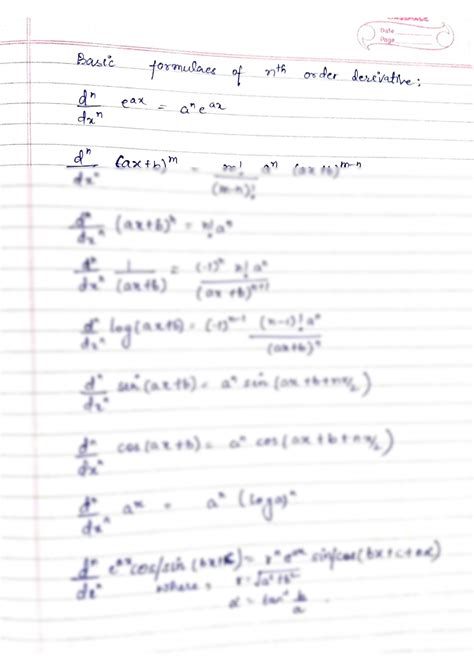 CLASSMATE
Date
Page
Basic formulaes of nth order derivative:
dⁿ/dxⁿ e^ax = aⁿe^ax
dⁿ/dxⁿ (ax+b)^m = m!/(m-n)! aⁿ (ax+b)^m-n
dⁿ/dxⁿ (ax+b)ⁿ = n! aⁿ
dⁿ/dxⁿ 1/(ax+b) = (-1)ⁿ n! aⁿ/(ax+b)^n+1
dⁿ/dxⁿ log(ax+b) = (-1)^n-1 (n-1)! aⁿ/(ax+b)ⁿ
dⁿ/dxⁿ sin(ax+b) = aⁿ sin(ax+b+nπ/2)
dⁿ/dxⁿ cos(ax+b) = aⁿ cos(ax+b+nπ/2)
dⁿ/dxⁿ a^x = a^x (log a)ⁿ
dⁿ/dxⁿ e^ax cos/sin(bx+c) = rⁿ e^ax sin/cos(bx+c+nα)
where, r = √a²+b²
α = tan⁻¹ b/a